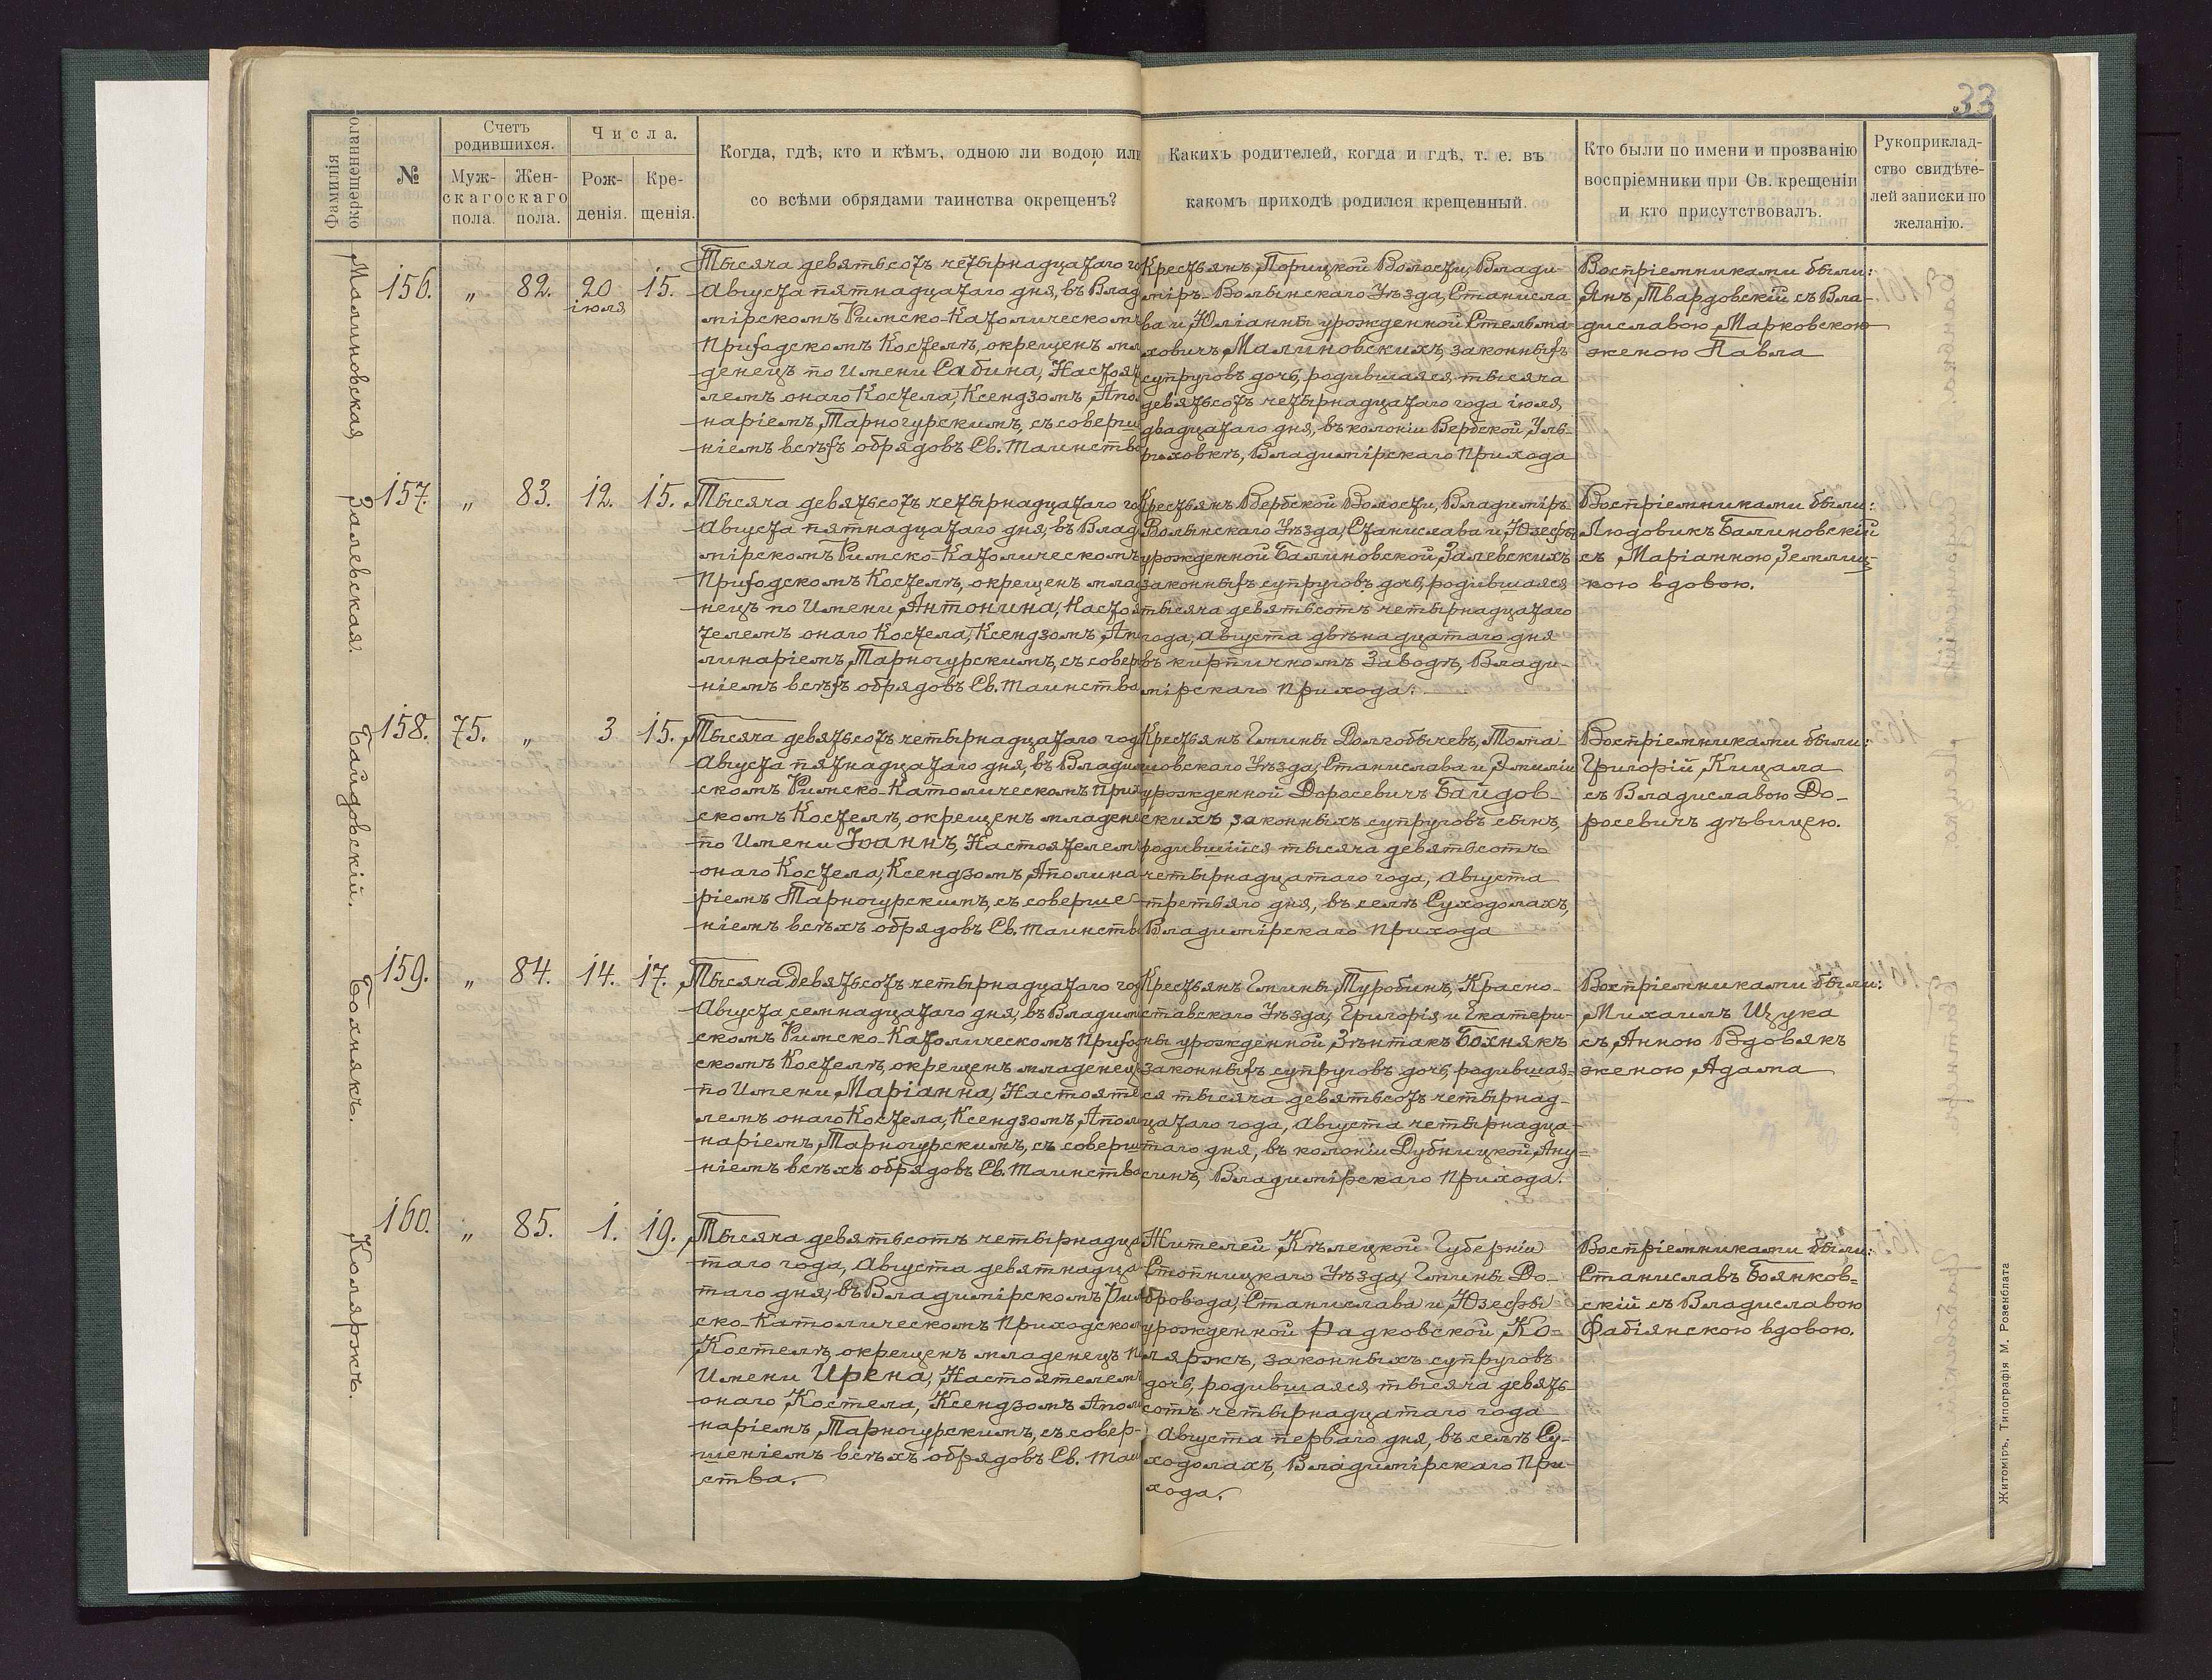 33
Фамилія окрещеннаго
№
Счетъ родившихся.
Мужскаго пола.
Женскаго пола.
Числа.
Рожденія.
Крещенія.
Когда, гдѣ, кто и кѣмъ, одною ли водою или
со всѣми обрядами таинства окрещенъ?
Какихъ родителей, когда и гдѣ, т. е. въ
какомъ приходѣ родился крещенный.
Кто были по имени и прозванію
воспріемники при Св. крещеніи
и кто присутствовалъ.
Рукоприклад-
ство свидѣте-
лей записки по
желанію.
Малиновская
156. „ 82. 20 іюля 15.
Тысяча девятьсотъ четырнадцатаго го
Августа пятнадцатаго дня, въ Влад
мірскомъ Римско-Католическомъ
Приходскомъ Костелѣ, окрещенъ мла
денецъ по Имени Сабина, Настоят
лемъ онаго Костела, Ксендзомъ Апо
наріемъ Тарногурскимъ, съ соверш
ніемъ всѣхъ обрядовъ Св. Таинства
Крестьянъ, Порицкой Волости, Влади-
міръ-Волынскаго Уѣзда, Станисла-
ва и Юліанны урожденной Стельма-
ховичъ Малиновскихъ, законныхъ
супруговъ дочь, родившаяся тысяча
девятьсотъ четырнадцатаго года іюля
двадцатаго дня, въ колоніи Вербской, Уль-
риховкѣ, Владимірскаго Прихода
Воспріемниками были:
Янъ Твардовскій съ Вла-
диславою Марковскою
женою Павла
Залевская.
157. „ 83. 12. 15.
Тысяча девятьсотъ четырнадцатаго го
Августа пятнадцатаго дня, въ Влад
мірскомъ Римско-Католическомъ
Приходскомъ Костелѣ, окрещенъ мла
нецъ по Имени Антонина, Настоя
телемъ онаго Костела, Ксендзомъ Апо
линаріемъ Тарногурскимъ, съ совер
ніемъ всѣхъ обрядовъ Св. Таинства
Крестьянъ Вербской Волости, Владиміръ
Волынскаго Уѣзда, Станислава и Юзефы
урожденной Балиновской Залевскихъ
законныхъ супруговъ дочь, родившаяся
тысяча девятьсотъ четырнадцатаго
года, августа двѣнадцатаго дня
въ кирпичномъ Заводѣ, Влади-
мірскаго Прихода.
Воспріемниками были:
Людовикъ Балиновскій
съ Маріанною Землиц-
кою вдовою.
Байдовскій.
158. 75. „ 3 15.
Тысяча девятьсотъ четырнадцатаго год
Августа пятнадцатаго дня, въ Владим
скомъ Римско-Католическомъ Прих
скомъ Костелѣ, окрещенъ младене
по Имени Іоаннъ, Настоятелемъ
онаго Костела, Ксендзомъ Аполина
ріемъ Тарногурскимъ, съ соверше-
ніемъ всѣхъ обрядовъ Св. Таинств
Крестьянъ Гмины Долгобычевъ, Тома-
шовскаго Уѣзда, Станислава и Эмиліи
урожденной Доросевичъ Байдов-
скихъ законныхъ супруговъ сынъ,
родившійся тысяча девятьсотъ
четырнадцатаго года, Августа
третьяго дня, въ селѣ Суходолахъ,
Владимірскаго Прихода
Воспріемниками были:
Григорій Кицала
съ Владиславою До-
росевичъ дѣвицею.
Бохнякъ.
159. „ 84. 14. 17.
Тысяча Девятьсотъ четырнадцатаго год
Августа семнадцатаго дня, въ Владим
скомъ Римско-Католическомъ Приход
скомъ Костелѣ, окрещенъ младенец
по Имени Маріанна, Настояте
лемъ онаго Костела, Ксендзомъ Аполи
наріемъ Тарногурскимъ, съ соверш
ніемъ всѣхъ обрядовъ Св. Таинства
Крестьянъ Гмины, Туробинъ, Красно-
ставскаго Уѣзда, Григорія и Екатери-
ны урожденной Зѣнтакъ Бохнякъ
законныхъ супруговъ дочь, родившая-
ся тысяча девятьсотъ четырнад-
цатаго года, Августа четырнадца-
таго дня, въ колоніи Дубницкой, Ану-
синъ, Владимірскаго Прихода.
Воспріемниками были:
Михаилъ Щука
съ Анною Вдовякъ
женою Адама
Коляржъ.
160. „ 85. 1. 19.
Тысяча девятьсотъ четырнадца
таго года, Августа девятнадца-
таго дня, въ Владимірскомъ Рим
ско-Католическомъ Приходском
Костелѣ, окрещенъ младенецъ по
Имени Ирена, Настоятелемъ
онаго Костела, Ксендзомъ Аполи
наріемъ Тарногурскимъ, съ совер-
шеніемъ всѣхъ обрядовъ Св. Таин
ства.
Жителей Кѣлецкой Губерніи
Стопницкаго Уѣзда, Гмины До-
бровода, Станислава и Юзефы
урожденной Радковской Ко-
ляржъ, законныхъ супруговъ
дочь, родившаяся тысяча девять-
сотъ четырнадцатаго года
Августа перваго дня, въ селѣ Су-
ходолахъ, Владимірскаго При-
хода.
Воспріемниками были:
Станиславъ Боянков-
скій съ Владиславою
Фабіянскою вдовою.
Житоміръ, Типографія М. Розенблата